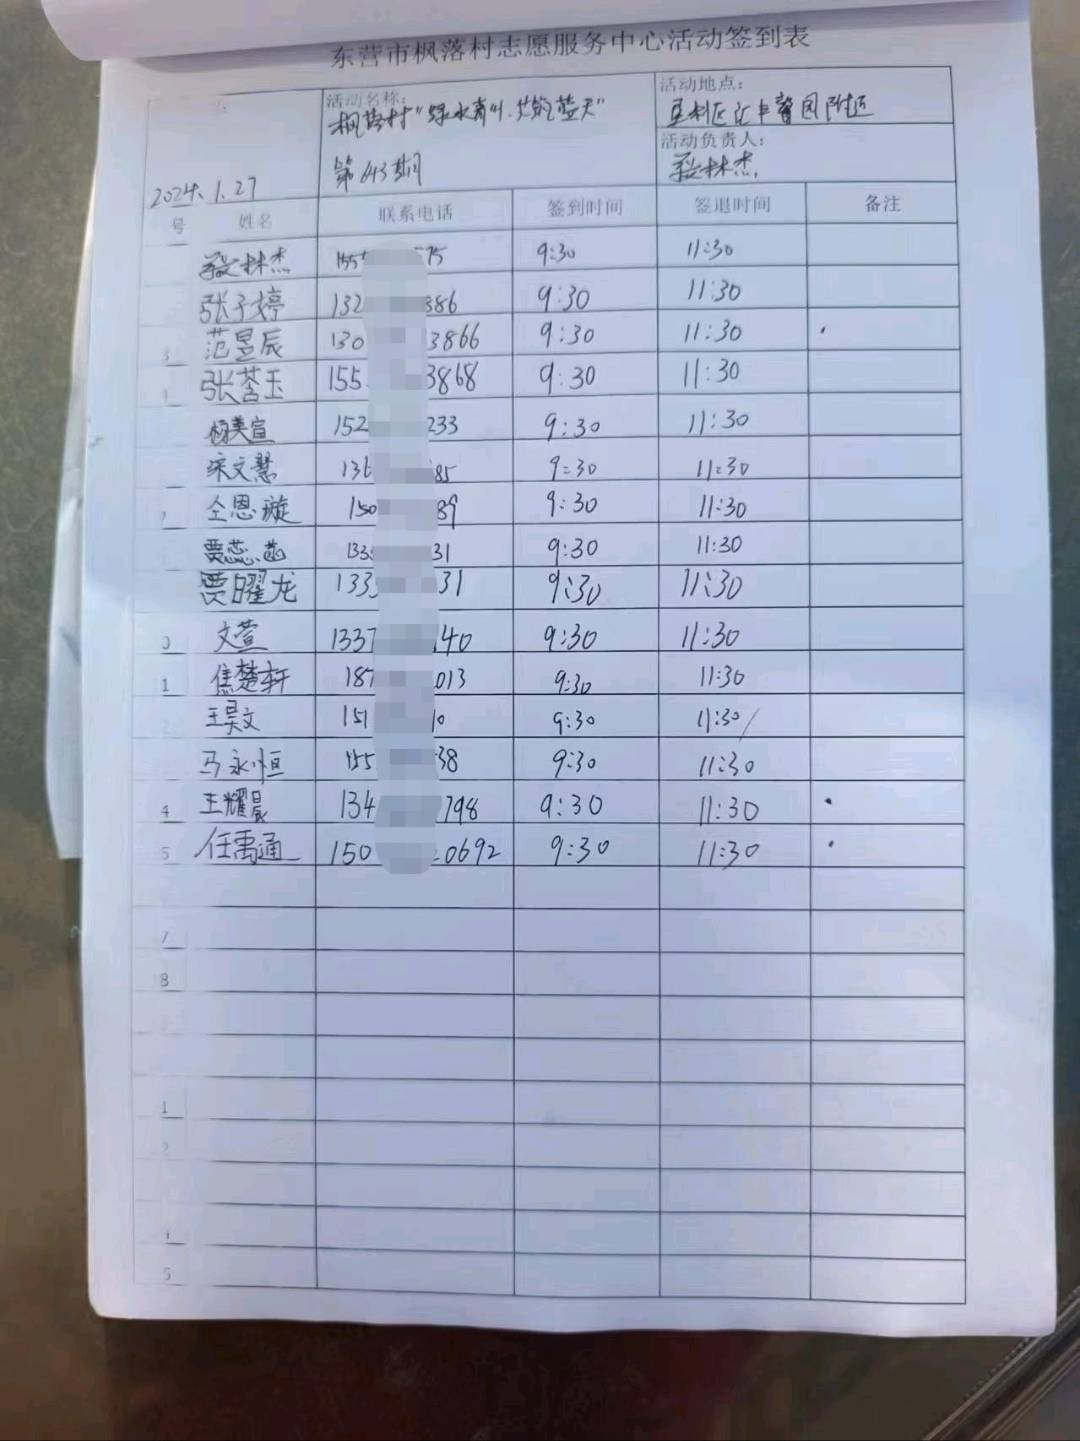 东营市枫落村志愿服务中心活动签到表
活动名称:
枫落村"绿水青山.共蓝天"
第643期
活动地点:
垦利区 附近
活动负责人:
林杰
2024.1.27
号 姓名 联系电话 签到时间 签退时间 备注
林杰 155 575 9:30 11:30
张子婷 132 386 9:30 11:30
3 范昱辰 130 3866 9:30 11:30
张莟玉 155 3868 9:30 11:30
杨美宣 152 233 9:30 11:30
宋文慧 136 85 9:30 11:30
7 仝恩璇 150 89 9:30 11:30
贾蕊菡 133 31 9:30 11:30
贾曜龙 133 31 9:30 11:30
0 文萱 1337 140 9:30 11:30
1 焦楚轩 187 013 9:30 11:30
2 王昊文 151 10 9:30 11:30
马永恒 155 38 9:30 11:30
4 王耀晨 134 798 9:30 11:30
5 任禹通 150 0692 9:30 11:30
7
8
1
2
5